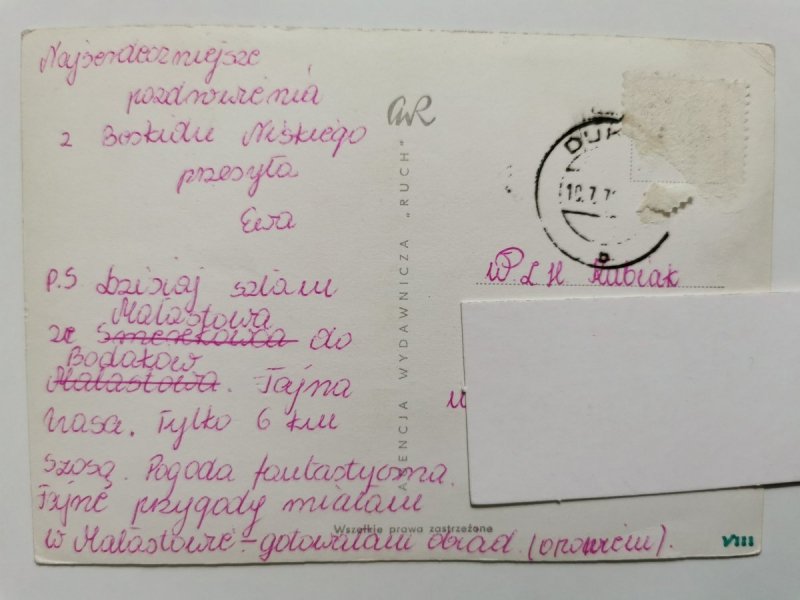 Najserdeczniejsze
pozdrowienia
z Beskidu Niskiego
przesyła
Ewa
P.S Dzisiaj szłam
Małastowa
ze Smerekowca do
Bodaków
Małastowa. Fajna
trasa. Tylko 6 km
szosą. Pogoda fantastyczna.
Fajne przygody miałam
w Małastowie - gotowałam obiad. (opowiem).
AGENCJA WYDAWNICZA „RUCH"
Wszelkie prawa zastrzeżone
10.7.7
WP L H Kubiak
VIII